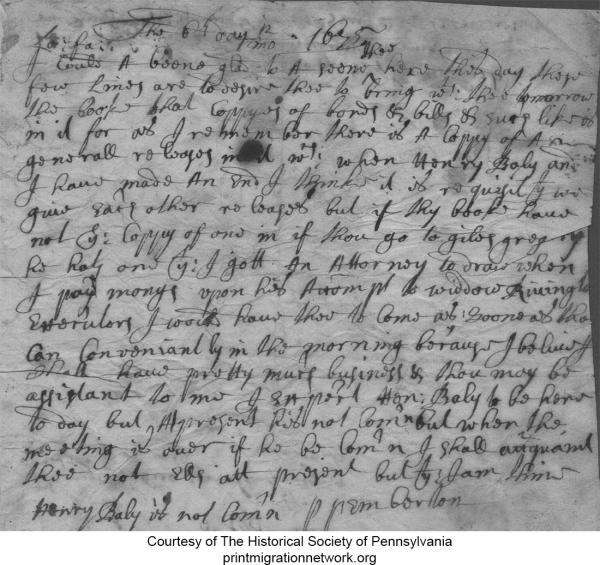 The 6th day 12mo: 1675
Jo: ffa:
I Could A beene glad to A seene thee here this day these
few Lines are to desire thee to bring wt: thee tomorrow
the booke that Coppyes of bonds & bills & such like is
in it for as I remember there is A Coppy of A
generall releases in it wch: when Henry Baly and
I have made An End I thinke it is requisit yt we
give Each other releases but if thy booke have
not ye: Coppy of one in if thou go to giles gregory
he hath one yt: I gott An Attorney to draw when
I paid monys upon his Accompt to widdow Rivington
Executors I would have thee to Come as: soone as thou
Can Conveniantly in the morning because I beleive I
shall have pretty much business & thou may be
assistant to me I Expect Hen: Baly to be here
to day but At present his not Com'n but when the
meeting is over if he be Com'n I shall acquaint
thee not Els att present but yt: I am thine
Henry Baly is not Com'n P Pemberton
Courtesy of The Historical Society of Pennsylvania
printmigrationnetwork.org